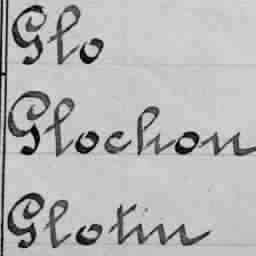 Glo
Glochon
Glotin